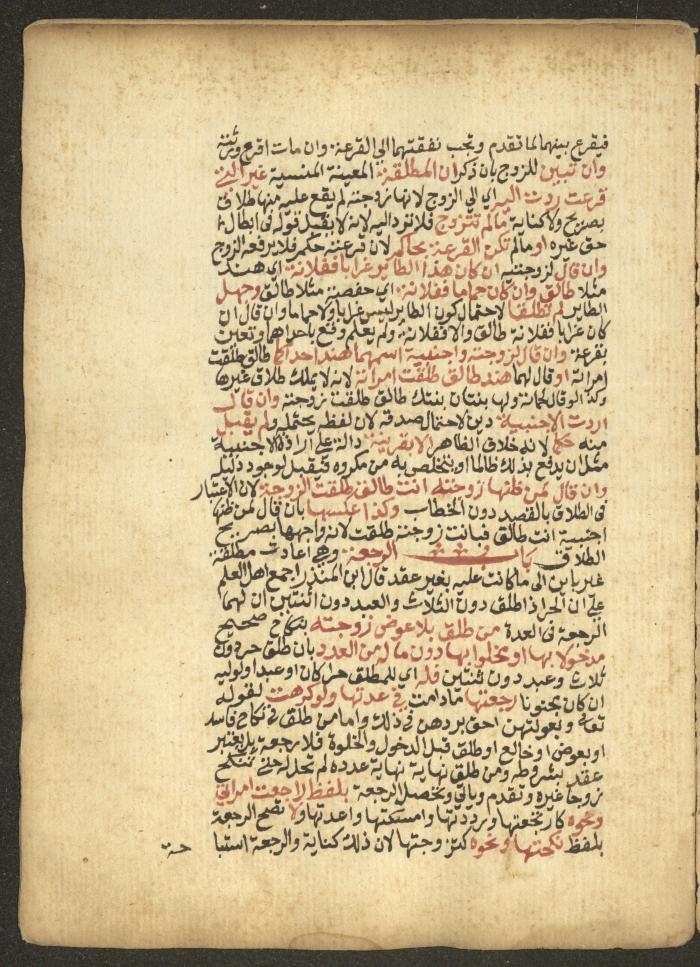 فيقرع بينهما لما تقدم وتجب نفقتهما الي القرعة وان مات اقرع ورثته
وان تبين للزوج بان ذكر ان المطلقة المعينة المنسية غير التي
قرعت ردت اليه اي الي الزوج لانها زوجته لم يقع عليه منها طلاق
بصريح ولا كناية ما لم تتزوج فلا ترد اليه لانه لا يقبل قوله في ابطال
حق غيره او ما لم تكن القرعة بحاكم لان قرعته حكم فلا يرفعه الزوج
وان قال لزوجتيه ان كان هذا الطاير غرابا ففلانة اي هند
مثلا طالق وان كان حماما ففلانة اي حفصة مثلا طالق وجهل
الطاير لم تطلقا لاحتمال كون الطاير ليس غرابا ولا حماما وان قال ان
كان غرابا ففلانة طالق والا ففلانة ولم يعلم وقع باحداهما وتعين
بقرعة وان قال لزوجته واجنبية اسمهما هند احداكما طالق طلقت
امراته او قال لهما هند طالق طلقت امراته لانه لا يملك طلاق غيرها
وكذا لو قال لحماته ولها بنتان بنتك طالق طلقت زوجته وان قال
اردت الاجنبية دين لاحتمال صدقه لان لفظه يحتمله ولم يقبل
منه حكما لانه خلاف الظاهر الا بقرينة دالة علي ارادة الاجنبية
مثل ان يدفع بذلك ظالما او يتخلص به من مكروه فيقبل لوجود دليله
وان قال لمن ظنها زوجته انت طالق طلقت الزوجة لان الاعتبار
في الطلاق بالقصد دون الخطاب وكذا عكسها بان قال لمن ظنها
اجنبية انت طالق فبانت زوجته طلقت لانه واجهها بصريح
الطلاق باب الرجعة وهي اعادت مطلقة
غير باين الي ما كانت عليه بغير عقد قال ابن المنذر اجمع اهل العلم
علي ان الحر اذا طلق دون الثلاث والعبد دون اثنتين ان لهما
الرجعة في العدة من طلق بلا عوض زوجته بنكاح صحيح
مدخولا بها او مخلوا بها دون ما له من العدد بان طلق حر دون
ثلاث وعبد دون ثنتين فله اي للمطلق حرا كان او عبدا ولوليه
ان كان مجنونا رجعتها ما دامت في عدتها ولو كرهت لقوله
تعالي وبعولتهن احق بردهن في ذلك واما من طلق في نكاح فاسد
او بعوض او خالع او طلق قبل الدخول والخلوة فلا رجعة بل يعتبر
عقد بشروطه ومن طلق نهاية عدده لم تحل له حتي تنكح
زوجا غيره وتقدم وياتي وتحصل الرجعة بلفظ راجعت امراتي
ونحوه كارتجعتها ورددتها وامسكتها واعدتها ولا تصح الرجعة
بلفظ نكحتها ونحوه كتزوجتها لان ذلك كناية والرجعة استبا
حة